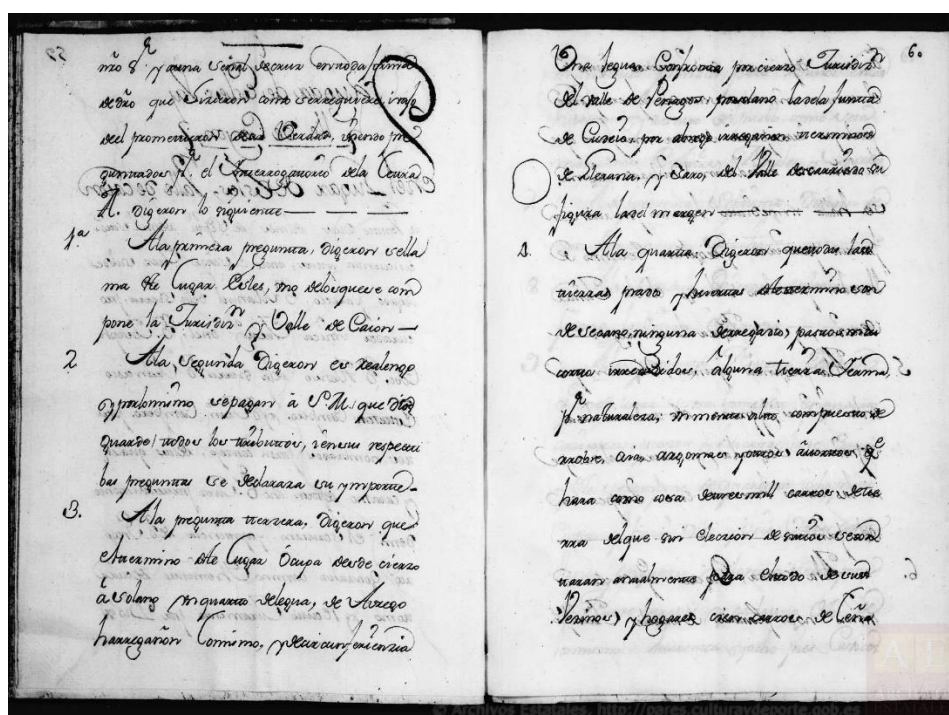 nrō S.r y a una señal de cruz en toda forma
de dro que hicieron como se requiere, vajo
del prometieron decir Verdad, y siendo pre
guntados p.r el Interrogatorio de la Letra
A. Digeron lo siguiente
1.a A la primera pregunta, digeron se lla
ma este Lugar Esles, uno de los que se com
pone la Jurisdiz.n y Valle de Caion
2 A la segunda Digeron es Realengo
y por lo mismo se pagan à S.M. que Dios
guarde todos los tributos, i en sus respecti
bas preguntas se declarara su ymporte
3. A la pregunta tierzera, Digeron que
el termino de este Lugar Ocupa desde cierzo
à Solano un quarto de legua, de Avrego
ha rregañon lo mismo, y de circunferienzia
6.
Una legua, Confronta por cierzo Jurisdiz.n
del Valle de Penagos, por solano la de la Junta
de Cudeio, por abrego y rregañon terminos
de Llerana, y Saro, del Valle de Carriedo su
figura la del margen
4. A la quarta Digeron que todas las
tierras prado y huertas de este termino son
de secano, ninguna de rregadio, pastos,
alguna tierra Yerma
p.r naturaleza, un monte alto compuesto de
rrobre, argomas y otros q.e
hara como cosa de tres mill carros de tie
rra del que sin elecion de sitios se cor
taran anualmente para el todo de sus
Vezinos y hogares cien carros de Leña,
© Archivos Estatales, http://pares.culturaydeporte.gob.es